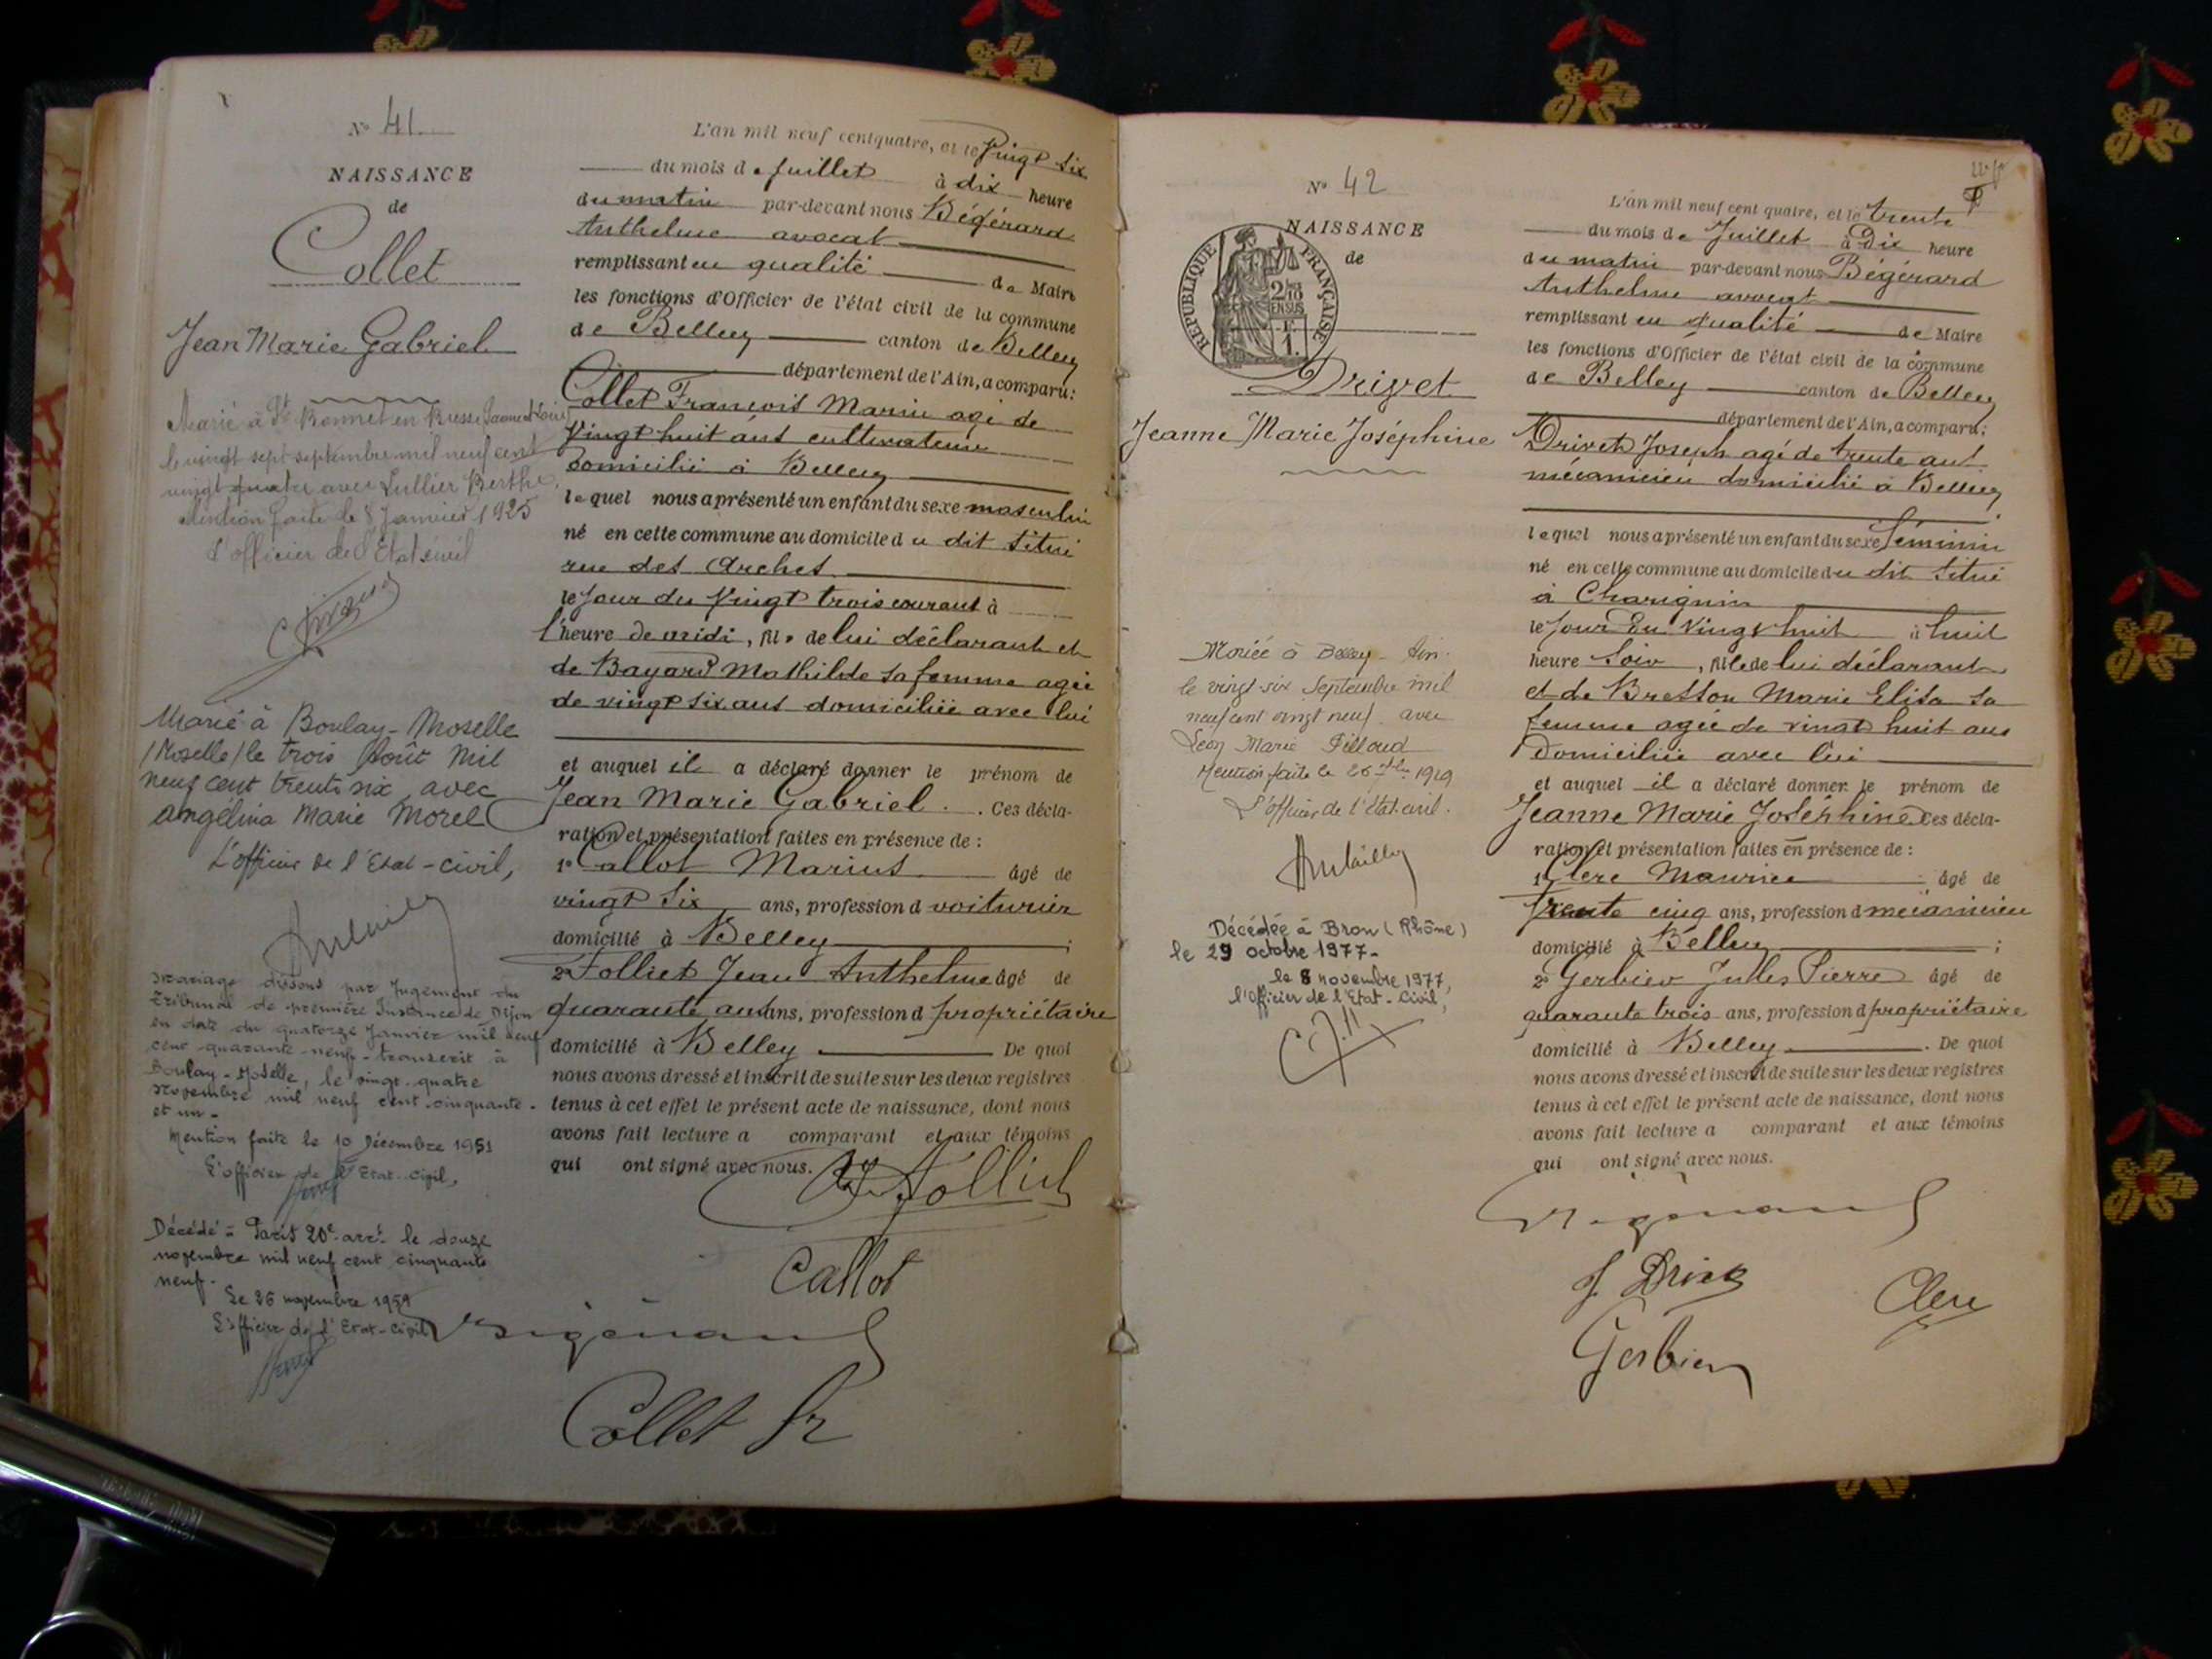 N° 41
NAISSANCE
de
Collet
Jean Marie Gabriel
Marié à St Bonnet en Bresse Saône et Loire
le vingt sept septembre mil neuf cent
vingt quatre avec Lullier Berthe
Mention faite le 8 Janvier 1925
L'officier de l'Etat civil
Marié à Boulay-Moselle
(Moselle) le trois Août mil
neuf cent trente six avec
Angélina Marie Morel
L'officier de l'Etat-civil,
Mariage dissous par Jugement du
Tribunal de première Instance de Dijon
en date du quatorze Janvier mil neuf
cent quarante-neuf - transcrit à
Boulay-Moselle, le vingt-quatre
novembre mil neuf cent cinquante-
et un-
Mention faite le 10 Décembre 1951
L'officier de l'Etat-Civil,
Décédé à Paris 20e arrt le douze
novembre mil neuf cent cinquante
neuf.
Le 26 novembre 1959
L'officier de l'Etat-Civil
L'an mil neuf cent quatre, et le vingt six
du mois de Juillet à dix heure
du matin par-devant nous Bégérard
Anthelme avocat
remplissant en qualité de Maire
les fonctions d'Officier de l'état civil de la commune
de Belley canton de Belley
département de l'Ain, a comparu:
Collet François Marin agé de
vingt huit ans cultivateur
domicilié à Belley
lequel nous a présenté un enfant du sexe masculin
né en cette commune au domicile du dit situé
rue des Arches
le Jour du vingt trois courant à
l'heure de midi, fils de lui déclarant et
de Bayard Mathilde sa femme agée
de vingt six ans domiciliée avec lui
et auquel il a déclaré donner le prénom de
Jean Marie Gabriel. Ces décla-
ration et présentation faites en présence de:
1° Callot Marius âgé de
vingt six ans, profession d voiturier
domicilié à Belley;
2° Folliet Jean Anthelme âgé de
quarante ans ans, profession d propriétaire
domicilié à Belley De quoi
nous avons dressé et inscrit de suite sur les deux registres
tenus à cet effet le présent acte de naissance, dont nous
avons fait lecture a comparant et aux témoins
qui ont signé avec nous.
Folliet
Callot
Bégérard
Collet Fr
N° 42
NAISSANCE
de
REPUBLIQUE FRANÇAISE
2/10
EN SUS
1 F.
Drivet
Jeanne Marie Joséphine
Mariée à Belley Ain
le vingt-six Septembre mil
neuf cent vingt neuf avec
Léon Marie Pilloud
Mention faite le 26 7bre 1929
L'officier de l'état-civil.
Décédée à Bron (Rhône)
le 29 octobre 1977-
le 8 novembre 1977,
l'Officier de l'Etat-Civil,
L'an mil neuf cent quatre, et le trente
du mois de Juillet à Dix heure
du matin par-devant nous Bégérard
Anthelme avocat
remplissant en qualité de Maire
les fonctions d'Officier de l'état civil de la commune
de Belley canton de Belley
département de l'Ain, a comparu:
Drivet Joseph agé de trente ans
mécanicien domicilié à Belley
lequel nous a présenté un enfant du sexe féminin
né en cette commune au domicile du dit situé
à Charignin
le Jour du vingt huit à huit
heure Soir, fille de lui déclarant
et de Bresson Marie Elisa sa
femme agée de vingt huit ans
Domiciliée avec lui
et auquel il a déclaré donner le prénom de
Jeanne Marie Joséphine Ces décla-
ration et présentation faites en présence de:
1° Clerc Maurice âgé de
Trente cinq ans, profession d mécanicien
domicilié à Belley;
2° Gerbier Jules Pierre âgé de
quarante trois ans, profession d propriétaire
domicilié à Belley. De quoi
nous avons dressé et inscrit de suite sur les deux registres
tenus à cet effet le présent acte de naissance, dont nous
avons fait lecture a comparant et aux témoins
qui ont signé avec nous.
Bégérard
J. Drivet
Clerc
Gerbier